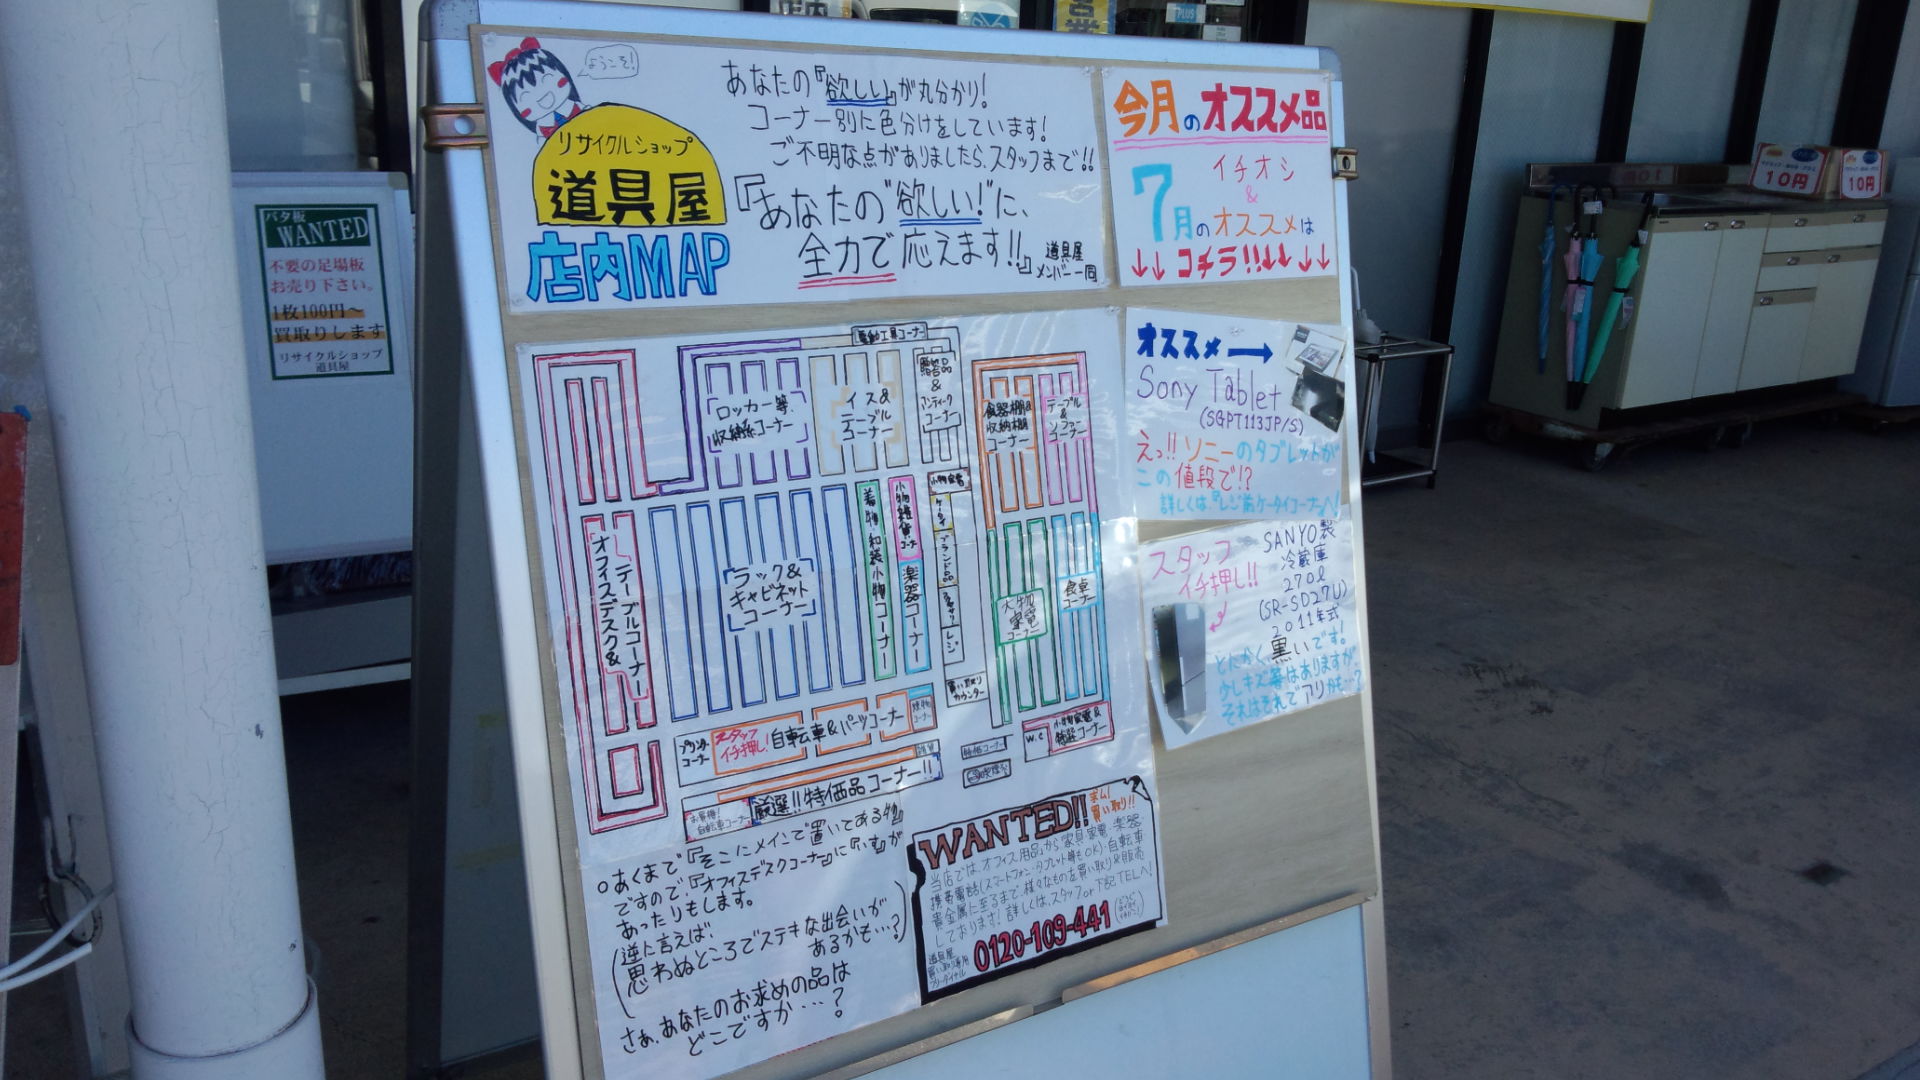 ようこそ!
リサイクルショップ
道具屋
店内MAP
あなたの『欲しい』が丸分かり!
コーナー別に色分けをしています!
ご不明な点がありましたら、スタッフまで!!
『あなたの"欲しい!"に、
全力で応えます!!』
道具屋
メンバー一同
今月のオススメ品
イチオシ
&
7月のオススメは
↓↓コチラ!!↓↓↓↓
オススメ→
Sony Tablet
(SGPT113JP/S)
えっ!!ソニーのタブレットが
この値段で!?
詳しくは『レジ前ケータイコーナー』へ!
スタッフ
イチ押し!!
SANYO製
冷蔵庫
270ℓ
(SR-SD27U)
2011年式
とにかく、黒いです!
少しキズ等はありますが、
それはそれでアリかも…?
電動工具コーナー
ロッカー等、
収納系コーナー
イス&
テーブル
コーナー
贈答品
&
アンティーク
コーナー
食器棚&
収納棚
コーナー
テーブル
&
ソファー
コーナー
オフィスデスク&
テーブルコーナー
ラック&
キャビネット
コーナー
着物・和装小物コーナー
小物雑貨コーナー
楽器コーナー
小物家電
ケータイ
ブランド品
レジ
買い取り
カウンター
大物
家電
コーナー
食卓
コーナー
プリンター
コーナー
スタッフ
イチ押し!
自転車&パーツコーナー
W.C
小物家電&
特選コーナー
自転車コーナー
厳選!!特価品コーナー!!
○あくまで、『そこにメインで置いてある物』
ですので、『オフィスデスクコーナー』に『いす』が
あったりもします。
(逆に言えば、
思わぬところでステキな出会いが
あるかも…?)
さぁ、あなたのお求めの品は
どこですか…?
WANTED!!
求ム!
買い取り!!
当店では、オフィス用品から家具・家電・楽器・
携帯電話(スマートフォン・タブレット等もOK)・自転車・
貴金属に至るまで、様々なものを買い取り&販売
しております!詳しくは、スタッフor下記TELへ!
道具屋
買い取り専用
フリーダイヤル
0120-109-441
バタ板
WANTED
不要の足場板
お売り下さい。
1枚100円〜
買取りします
リサイクルショップ
道具屋
10円
10円
PLUS